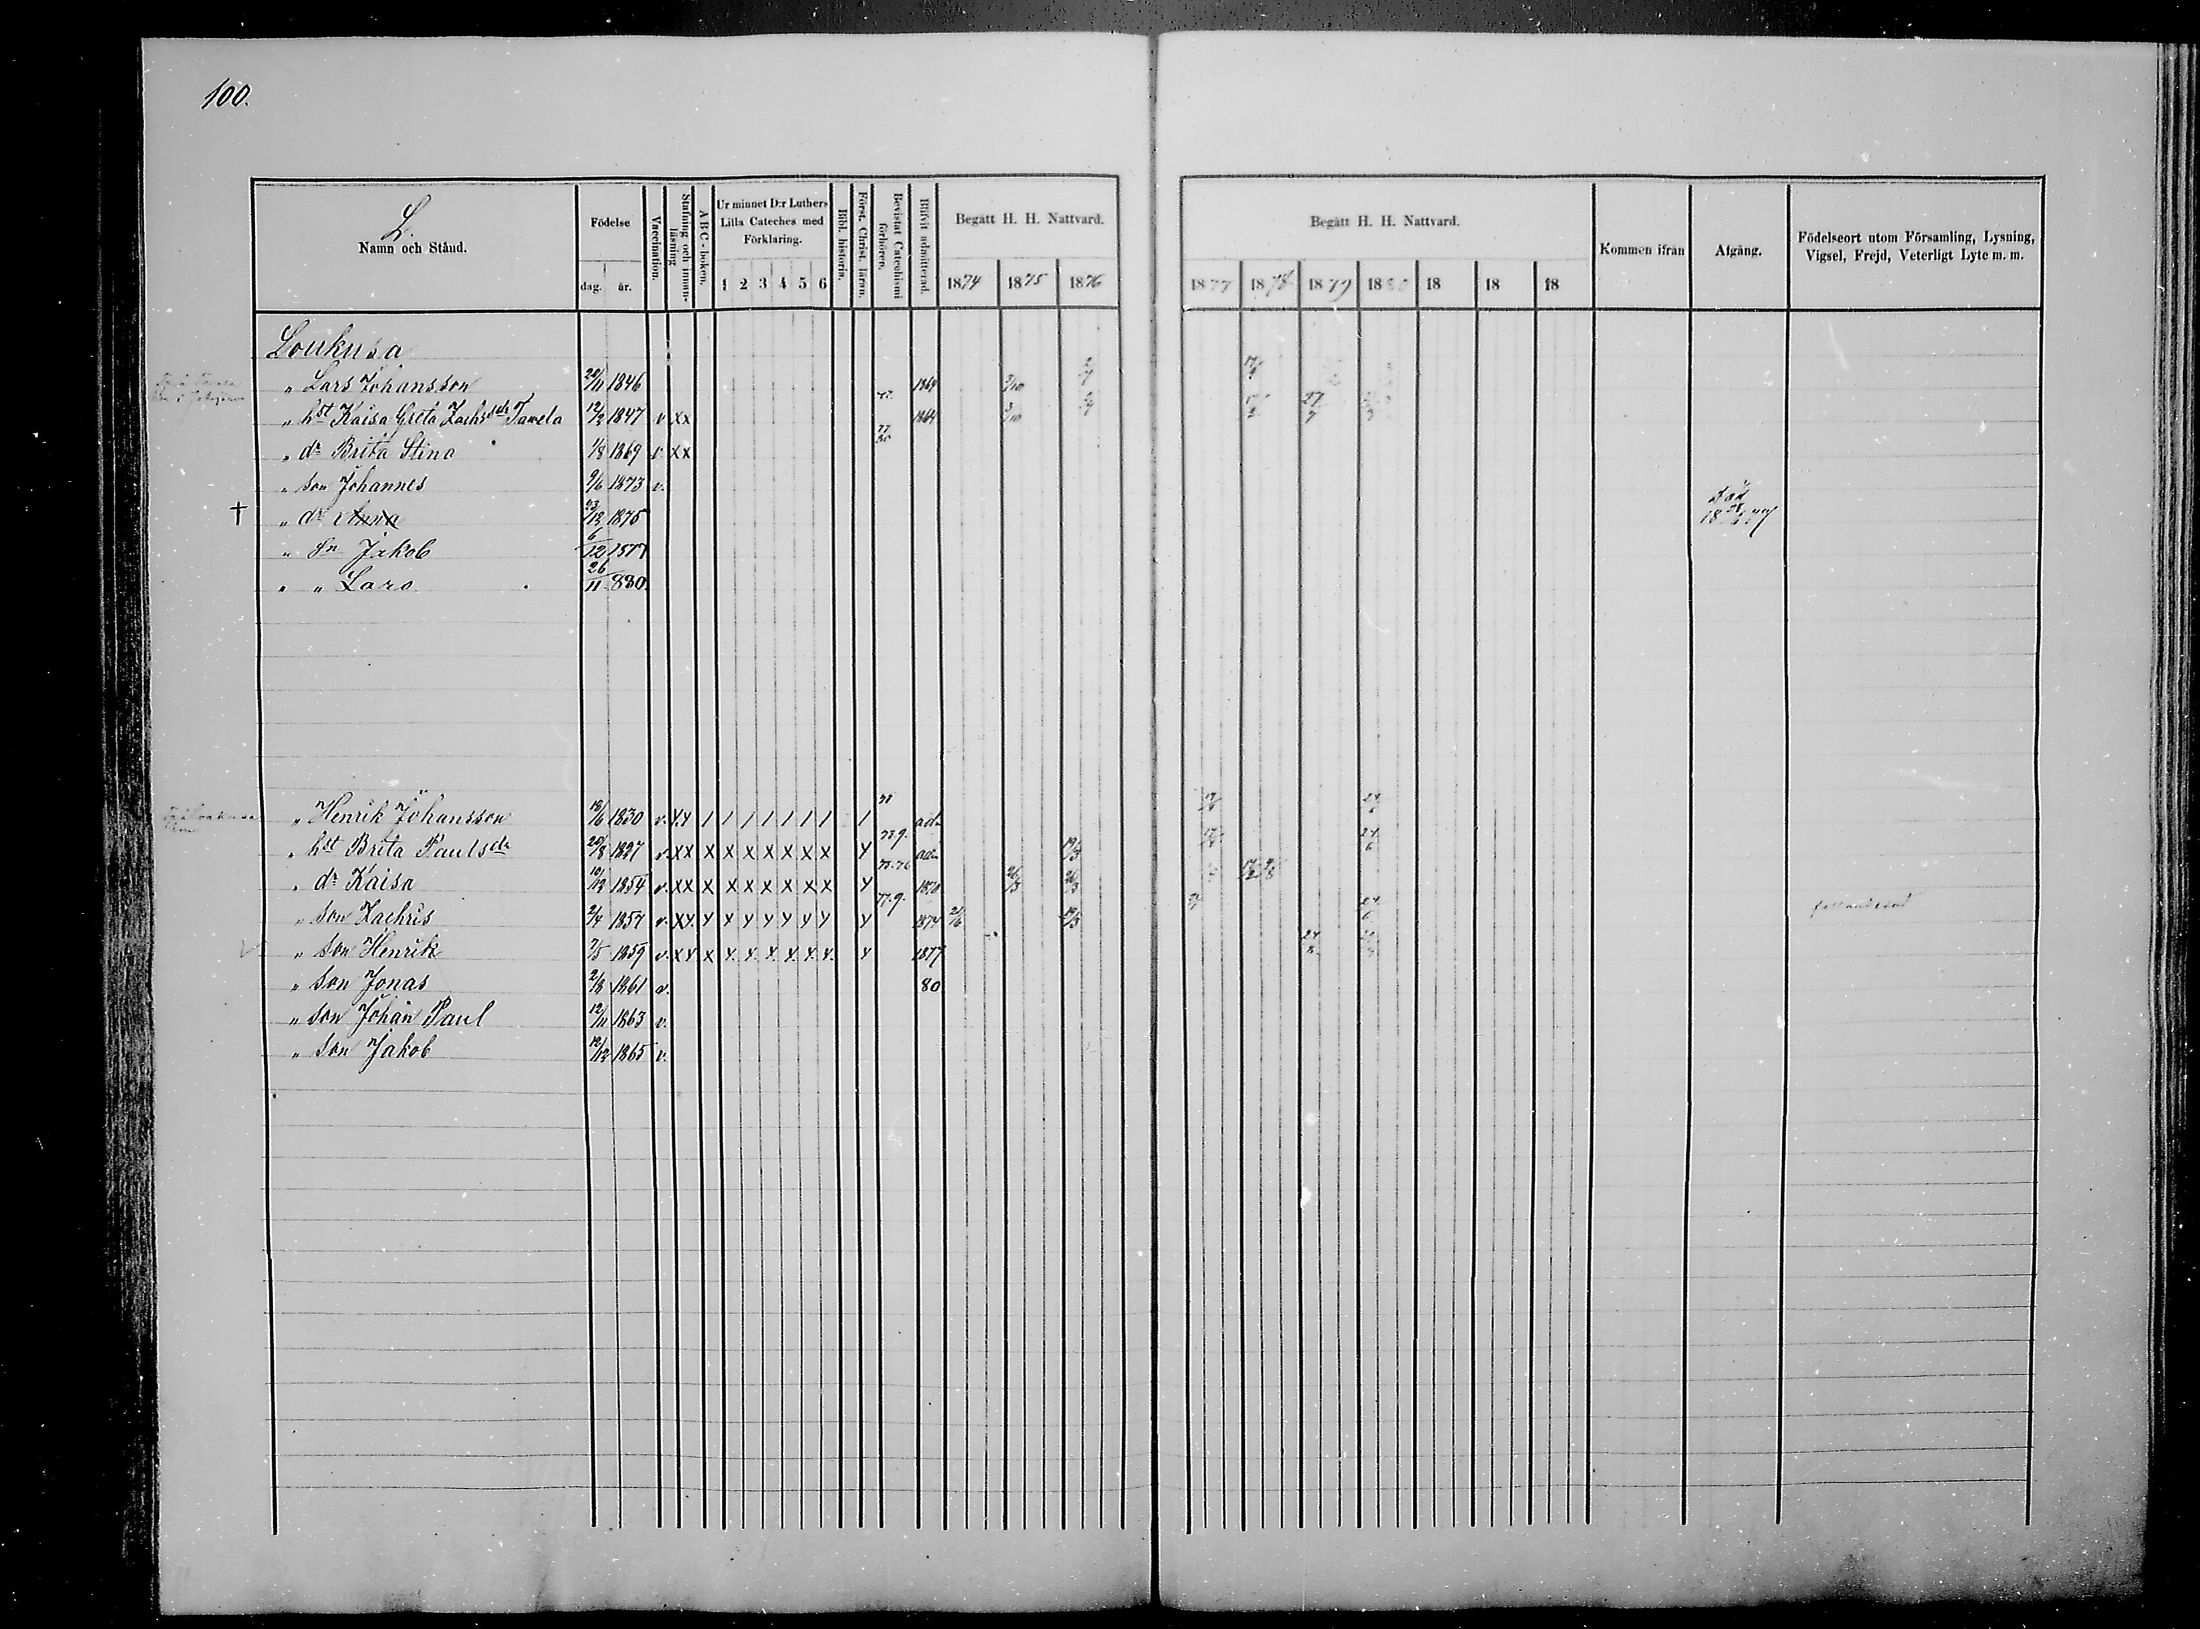 100.
L.
Namn och Stånd.
Födelse
dag. år.
Vaccination.
Stafning och innanläsning
ABC-boken.
Ur minnet D:r Luthers Lilla Cateches med Förklaring.
1 2 3 4 5 6
Bibl. historia.
Först. Christ. läran.
Bevistat Catechismi förhören.
Blifvit admitterad.
Begått H. H. Nattvard.
1874 1875 1876
Begått H. H. Nattvard.
1877 1878 1879 1880 18 18 18
Kommen ifrån
Afgång.
Födelseort utom Församling, Lysning, Vigsel, Frejd, Veterligt Lyte m. m.
Loukusa
„ Lars Johansson 20/11 1846 1864 3/10
„ hst Kaisa Greta Zachrsdr Tawela 12/2 1847 v XX 1864 3/10
„ dr Brita Stina 1/8 1869 v. XX 77 80
„ son Johannes 9/6 1873 v.
† „ dr Anna 23/12 1875 död 18 77
„ sn Jakob 6/12 1877
„ „ Lars 26/11 880.
„ Henrik Johansson 18/6 1830 v. XX / / / / / / / / ad.
„ hst Brita Paulsdr 20/8 1827 v. XX X X X X X X X X 77.9. adm 19/3
„ dr Kaisa 10/12 1854 v. XX X X X X X X X X 75.76 1870 26/3 26/3
„ son Zachris 2/4 1857 v. XX X X X X X X X X 77.9. 1874 21/6 19/3
„ son Henrik 7/5 1859 v. XX X X X X X X X X 1877
„ son Jonas 2/12 1861 v. 80
„ son Johan Paul 12/11 1863 v.
„ son Jakob 12/12 1865 v.